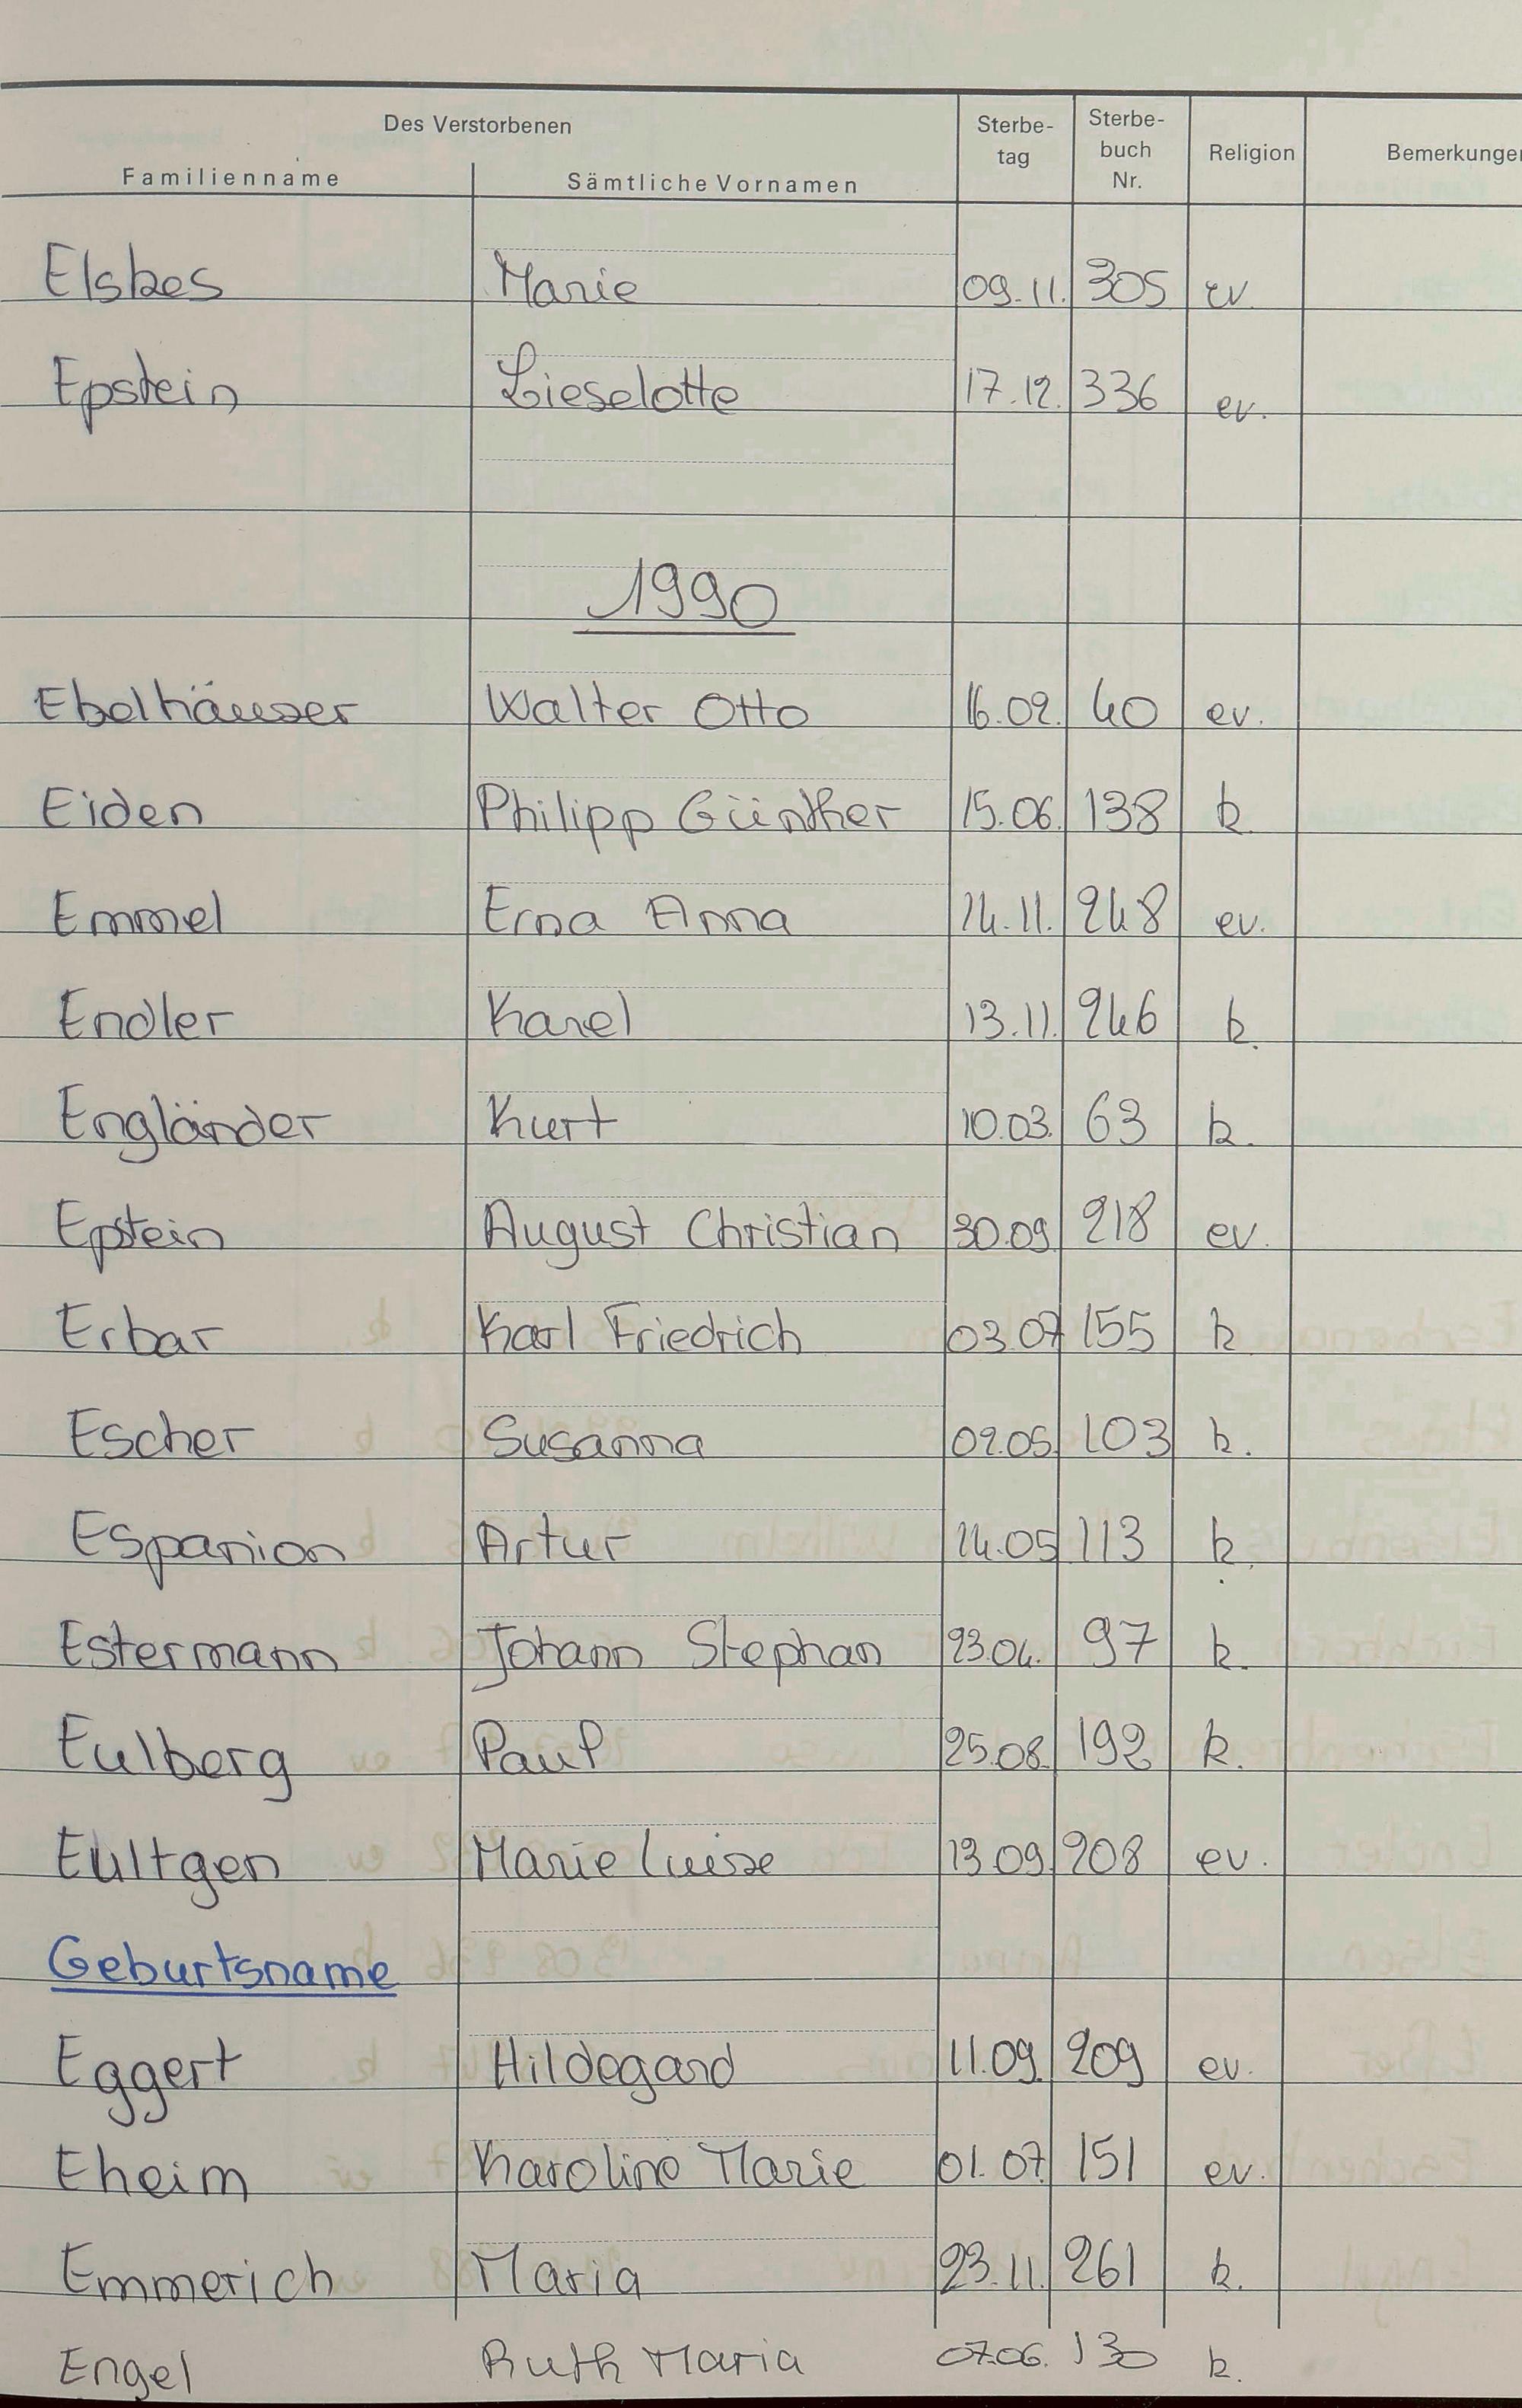 Des Verstorbenen
Familienname Sämtliche Vornamen Sterbe-tag Sterbe-buch Nr. Religion Bemerkungen
Elsbes Marie 09.11. 305 ev
Epstein Lieselotte 17.12. 336 ev.
1990
Ebelhäuser Walter Otto 16.02. 40 ev.
Eiden Philipp Günther 15.06. 138 k.
Emmel Erna Anna 14.11. 248 ev.
Endler Karel 13.11. 246 k.
Engländer Kurt 10.03. 63 k.
Epstein August Christian 30.09. 218 ev.
Erbar Karl Friedrich 03.07 155 k
Escher Susanna 02.05. 103 k.
Espanion Artur 14.05 113 k.
Estermann Johann Stephan 23.04. 97 k.
Eulberg Paul 25.08. 192 k.
Eultgen Marie Luise 13.09. 208 ev.
Geburtsname
Eggert Hildegard 11.09. 209 ev.
Eheim Karoline Marie 01.07. 151 ev.
Emmerich Maria 23.11. 261 k.
Engel Ruth Maria 07.06. 130 k.